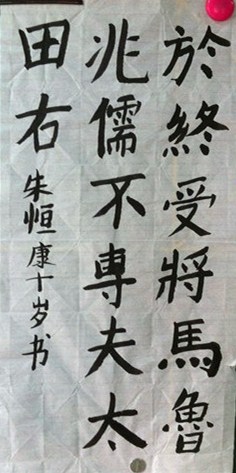 於終受將馬魯
兆儒不専夫太
田右
朱恒康十岁书